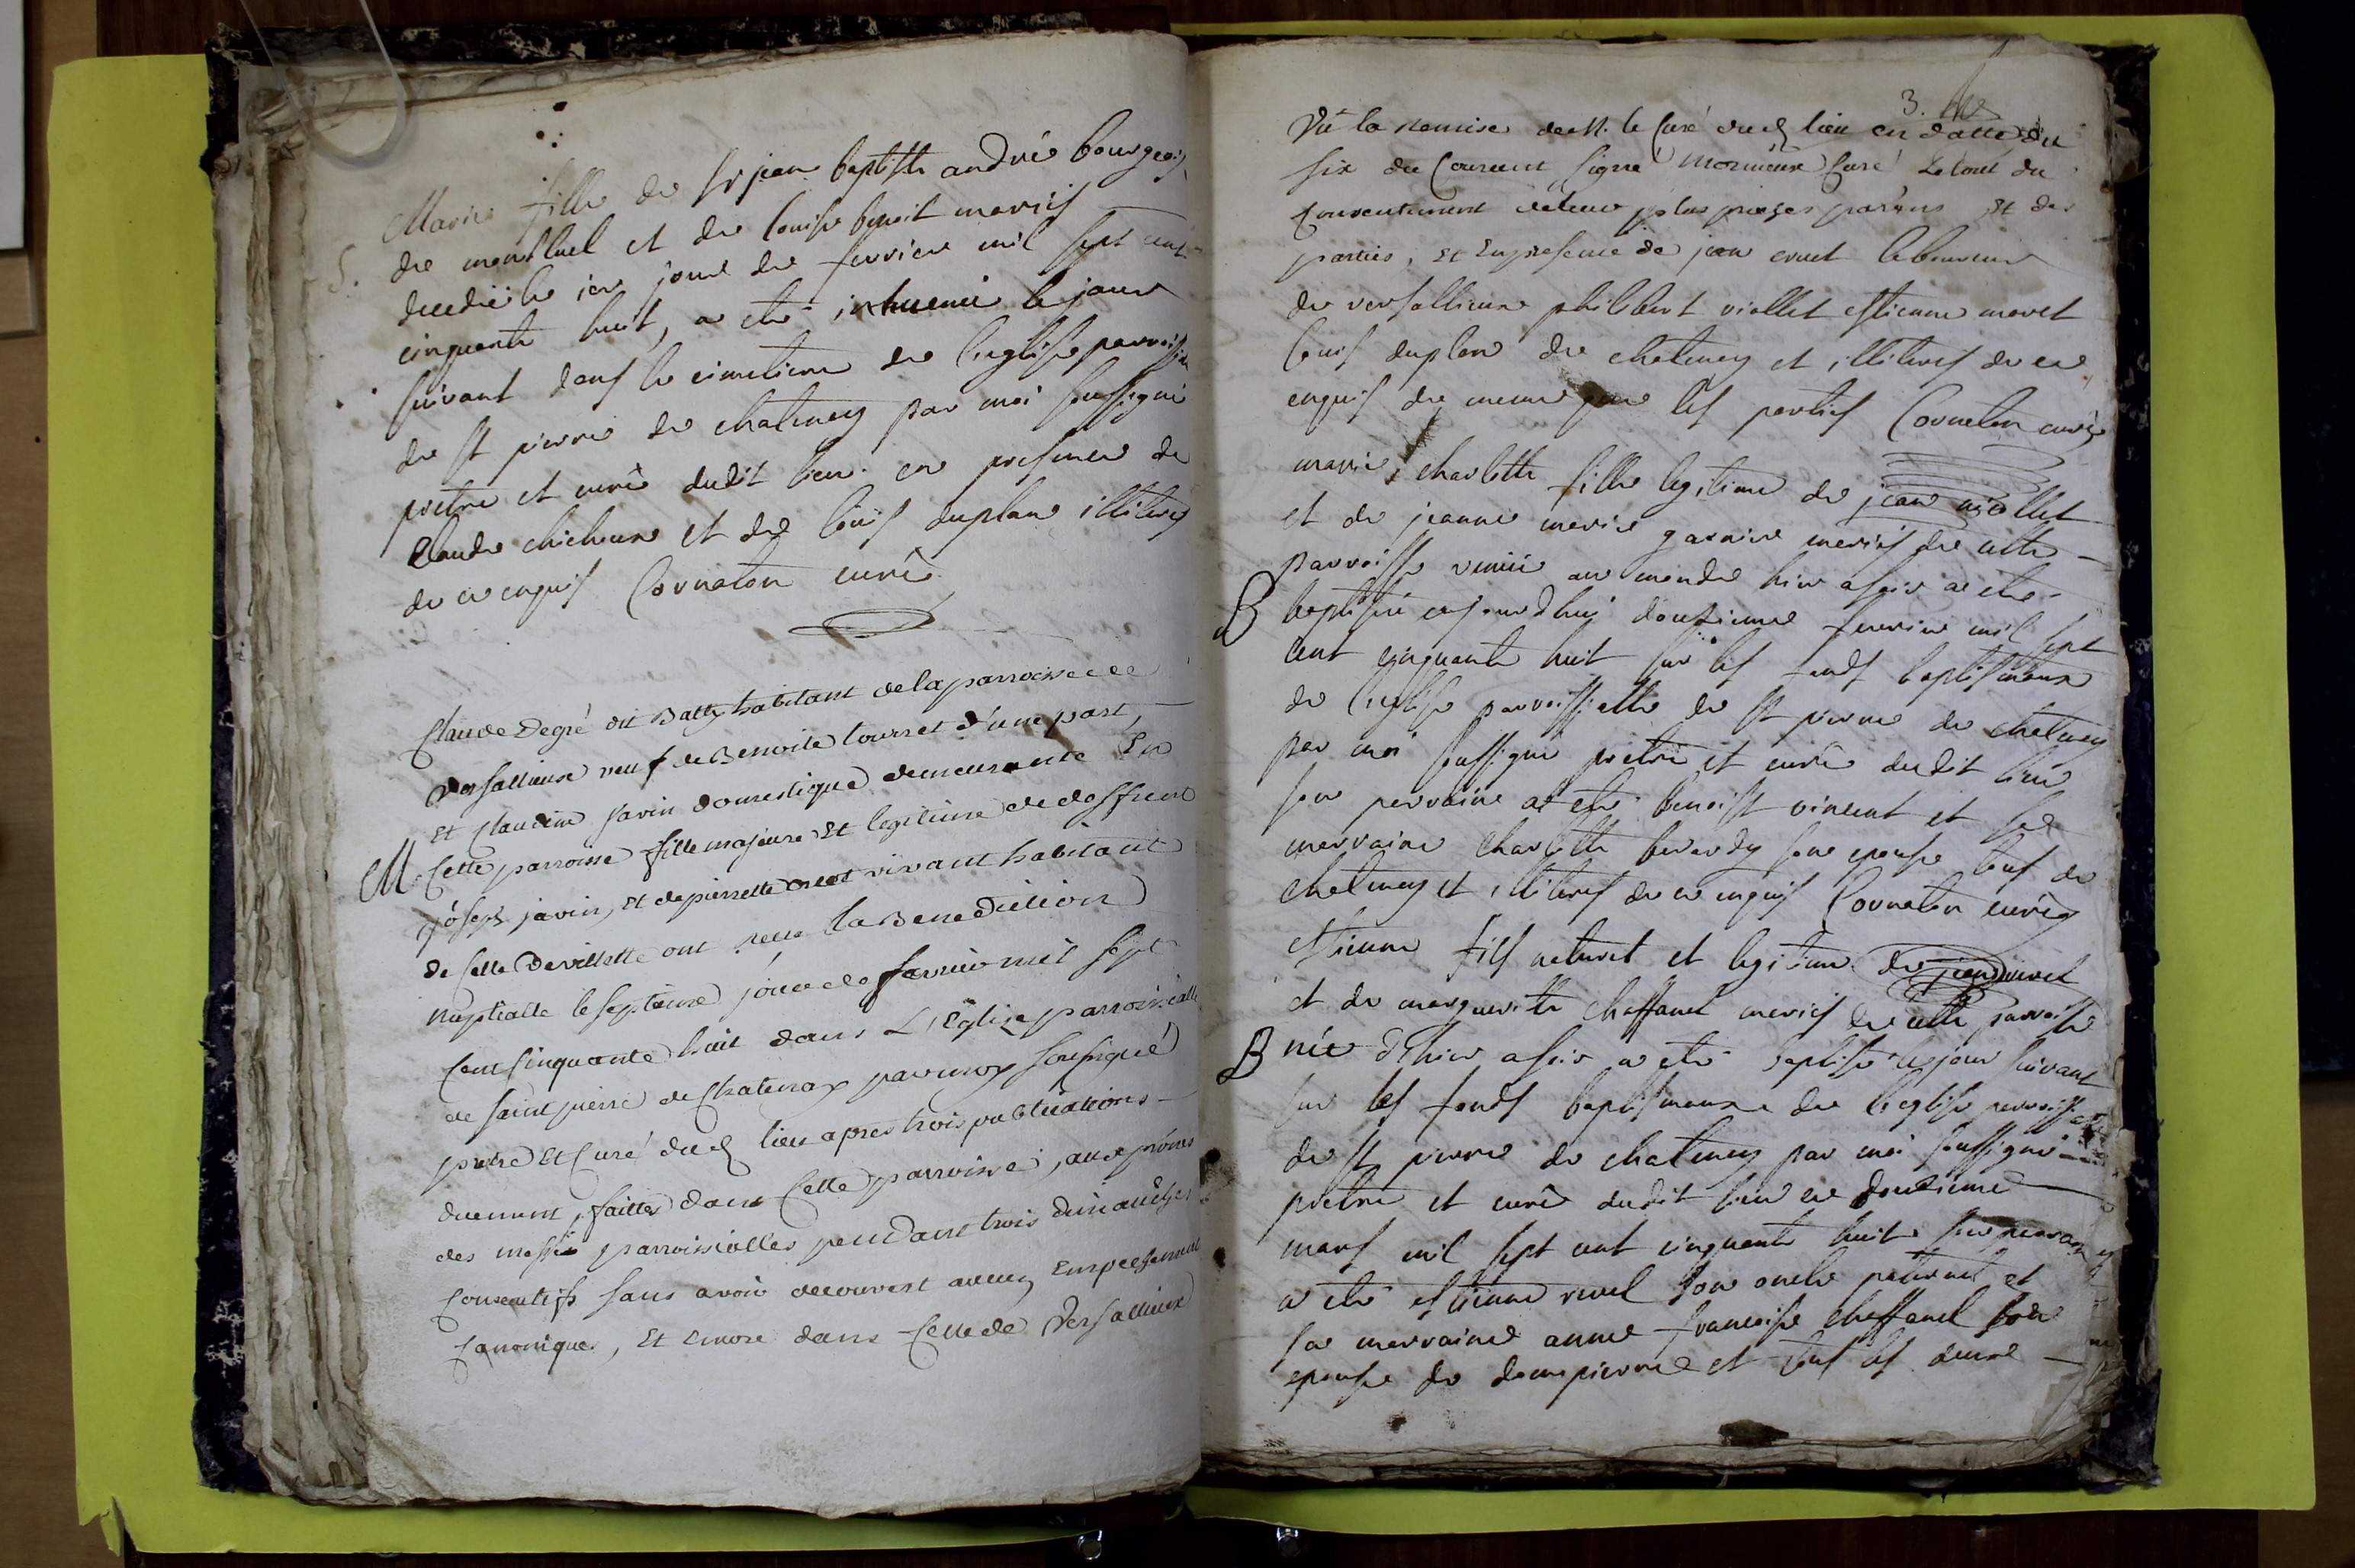 Marie fille de sr jean baptiste andrée bourgeois
S. de montluel et de louise benoit mariés
decedée le ier jour de fevrier mil sept cent
cinquante huit, a été inhumée le jour
suivant dans le cimetiere de l'eglise parroissiale
de st pierre de chatenay par moi soussigné
pretre et curé dudit lieu en presence de
Claude chicheune et de loüis duplan illiterés
de ce enquis Cornaton curé
Claude Degré dit Batty habitant de la parroisse de
Versallieux veuf de Benoite tourret d'une part,
Et Claudine javin domestique demeurante En
M Cette parroisse fille majeure Et legitime de deffunt
joseph javin, Et de pierrette vivant habitant
de Celle de villette ont receu la Benediction
nuptialle le septieme jour de fevrier mil sept
Cent Cinquante huit dans L'Eglise parroissialle
de saint pierre de Chatenay par moy soussigné
pretre Et Curé dud lieu apres trois publications
duement faittes dans Cette parroisse, aux prônes
des messes parroissialles pendant trois dimanches
Consecutifs sans avoir decouvert aucun Empechement
Canonique, Et Encore dans Celle de Versallieux
3.
Vû la remise de M. le Curé dud lieu en datte du
six du Courant signé Curé Le tout du
Consentement de leur plus proches parens Et des
parties, Et En presence de jean cruet laboureur
de versallieux philibert viollet estienne moret
louis duplan de chatenay et illiterés de ce
enquis de meme que les parties Cornaton curé
marie charlotte fille legitime de jean
et de jeanne marie garnier mariés de cette
parroisse venüe au monde hier a soir a été
B baptisée aujourd'huy douzieme fevrier mil sept
cent cinquante huit sur les fonds baptismaux
de l'eglise parroissialle de st pierre de chatenay
par moi soussigné pretre et curé dudit lieu
son parrain a été benoist vincent et sa
marraine charlotte son epouse tous de
chatenay et illiterés de ce enquis Cornaton curé
estienne fils naturel et legitime de jean
et de marguerite chaffanel mariés de cette parroisse
B née d'hier a soir a été baptisé le jour suivant
sur les fonds baptismaux de l'eglise parroissialle
de st pierre de chatenay par moi soussigné
pretre et curé dudit lieu ce douzieme
mars mil sept cent cinquante huit son parrain
a été estienne son oncle paternel et
sa marraine anne françoise chaffanel son
epouse de dompierre et tous les deux